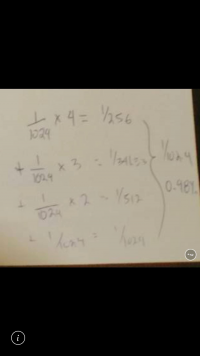 1/1024 × 4 = 1/256
+ 1/1024 × 3 =
+ 1/1024 × 2 = 1/512
+ 1/1024 = 1/1024
0.98%